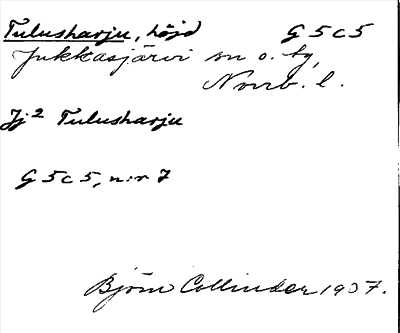 Tulusharju, höjd G 5 c 5
Jukkasjärvi sn o. tg,
Norrb. l.
Jj² Tulusharju
G 5 c 5, n:r 7
Björn Collinder 1937.